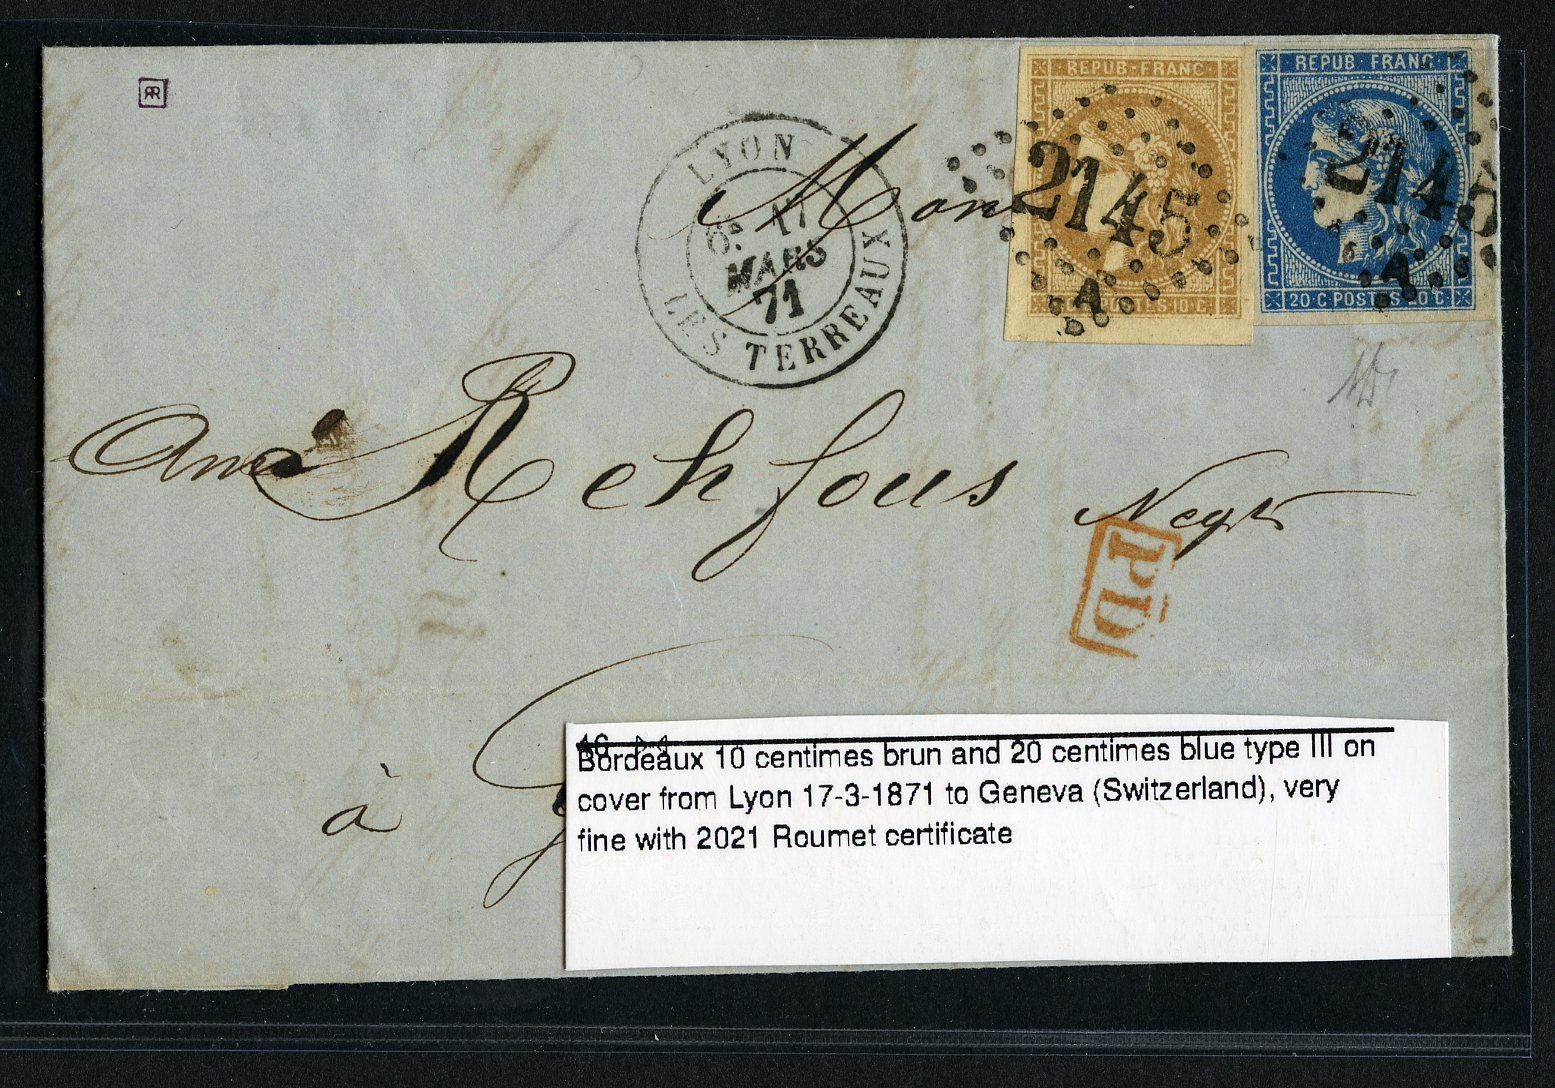 REPUB·FRANC
REPUB·FRANC
LYON
17
MARS
71
LES TERREAUX
Mon
2145
A
2145
A
POSTES·10·C
20·C·POSTES·20·C
Amé Rehfous Negt
PD
à
Bordeaux 10 centimes brun and 20 centimes blue type III on
cover from Lyon 17-3-1871 to Geneva (Switzerland), very
fine with 2021 Roumet certificate